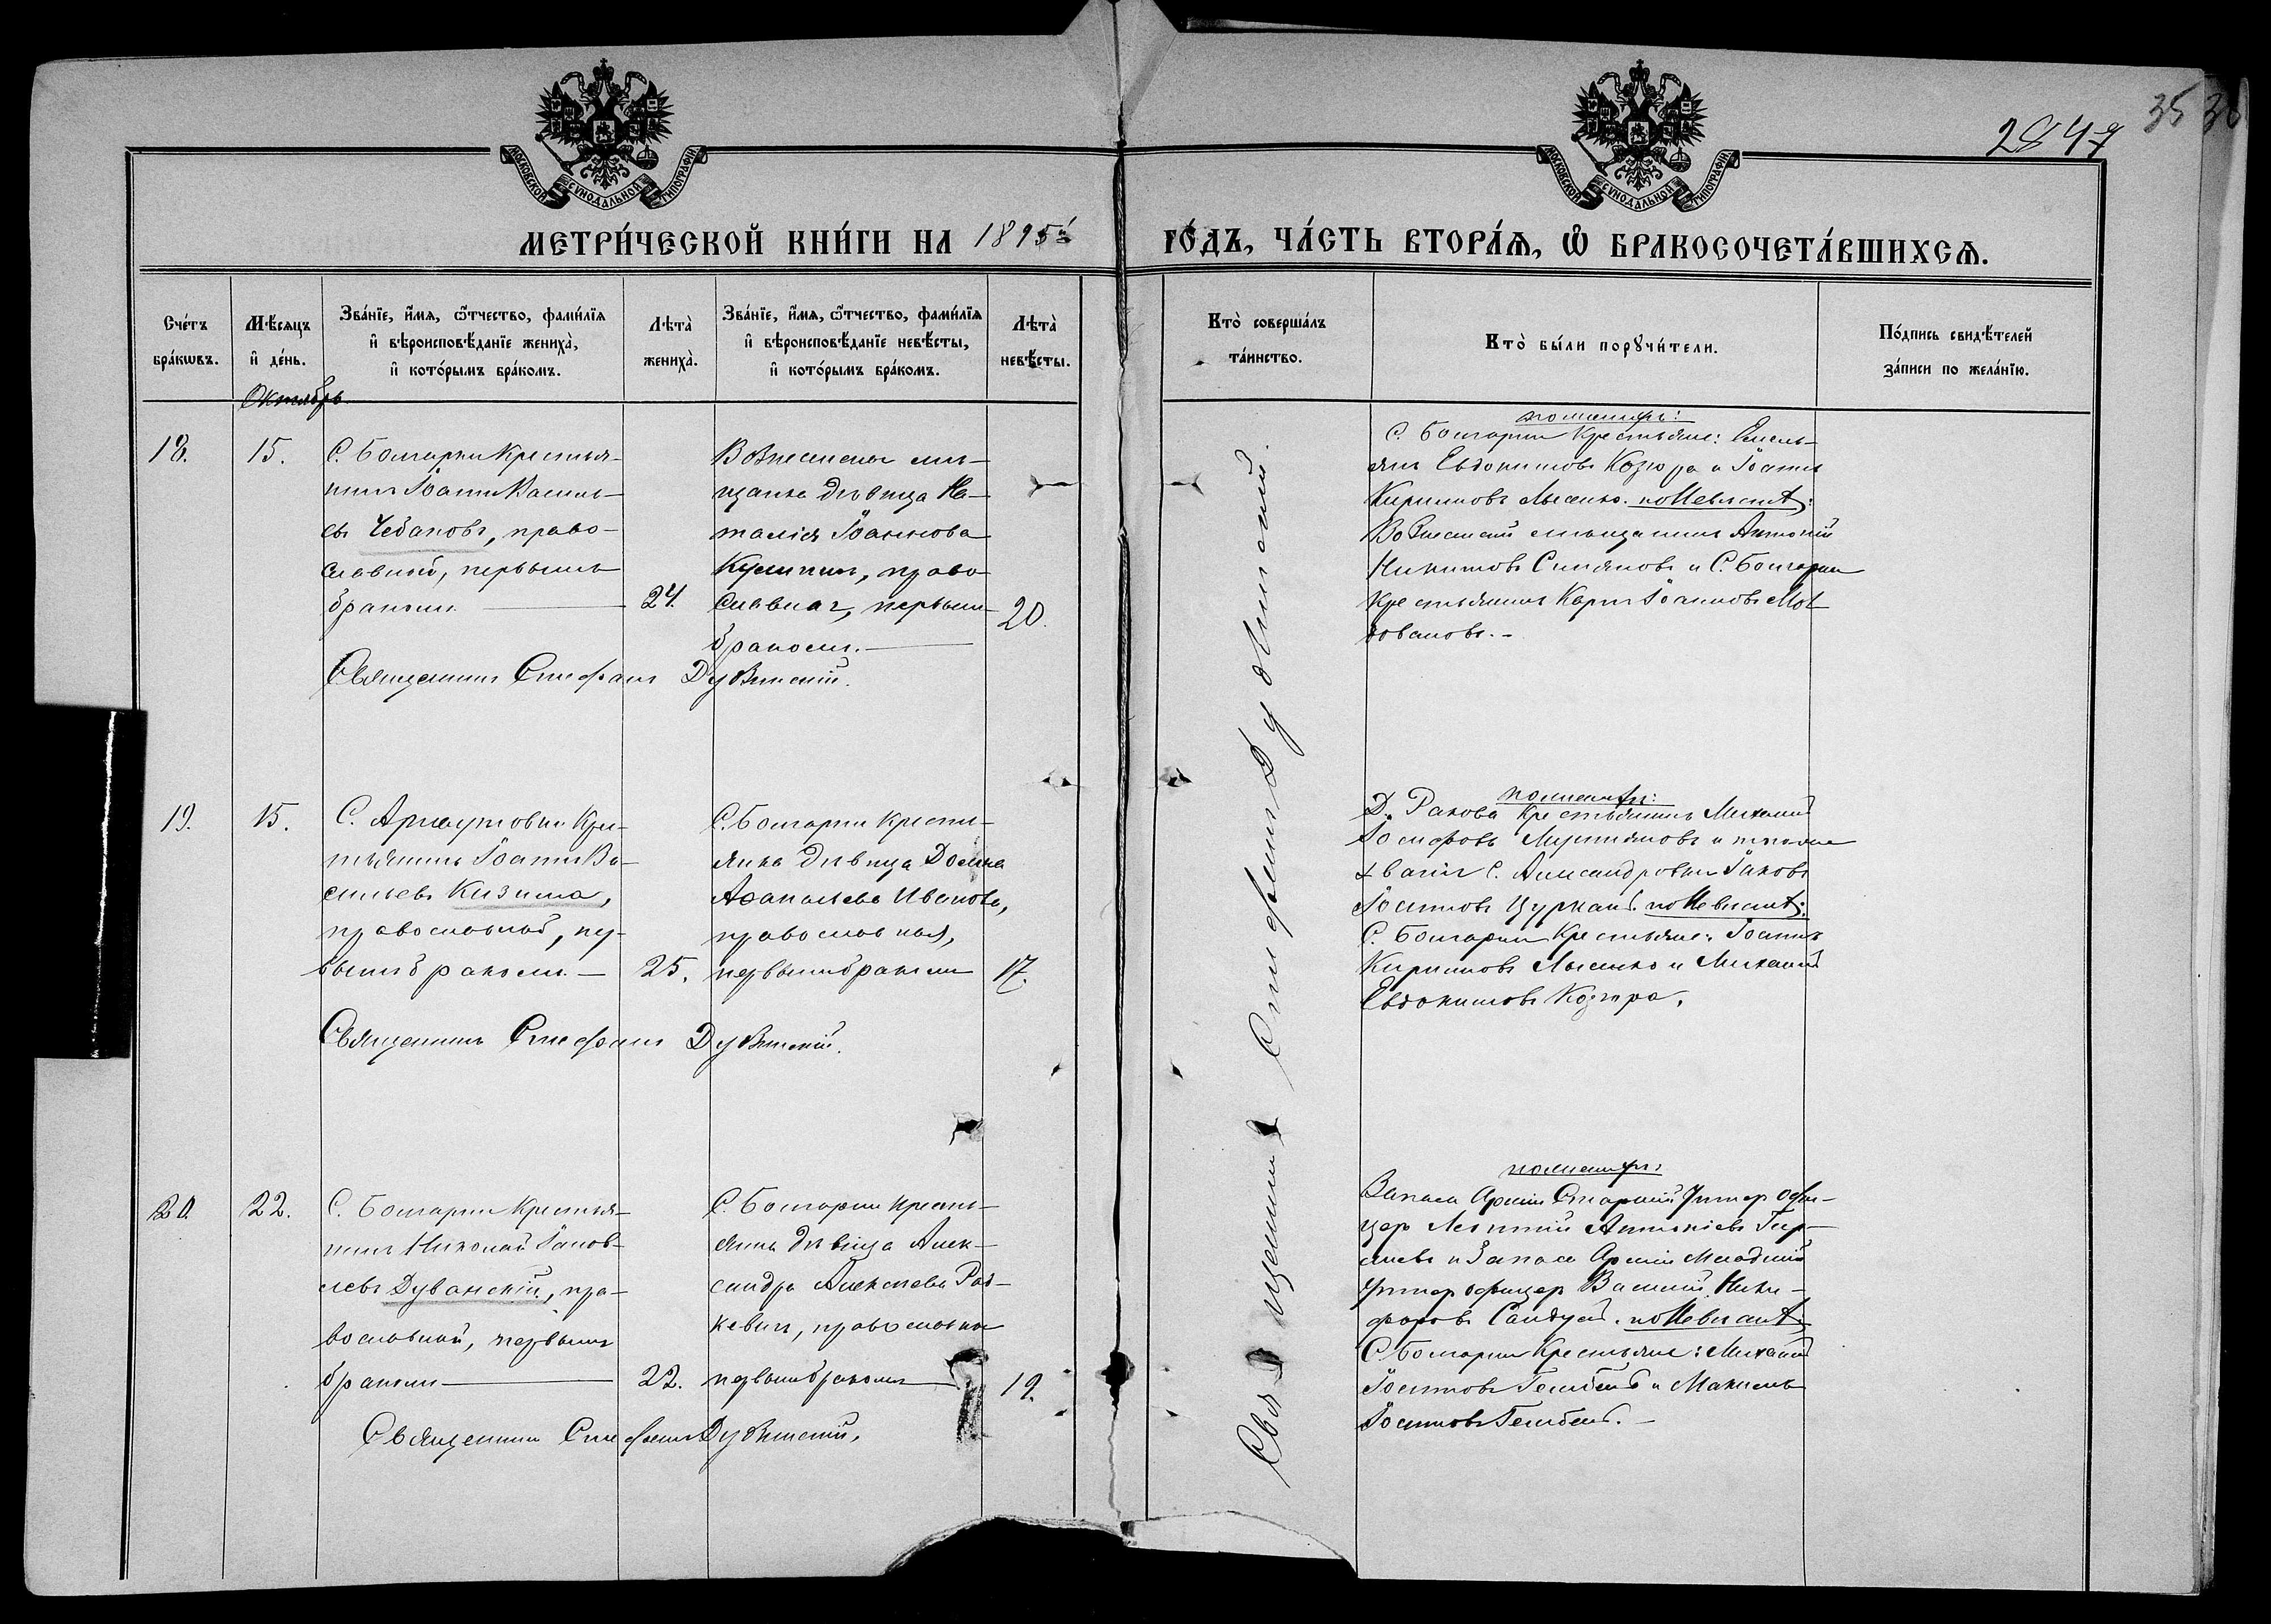 35
2847
МОСКОВСКОЙ СѴНОДАЛЬНОЙ ТИПОГРАФІИ
МОСКОВСКОЙ СѴНОДАЛЬНОЙ ТИПОГРАФІИ
МЕТРИ́ЧЕСКОЙ КНИ́ГИ НА 1895й
ГО́ДЪ, ЧА́СТЬ ВТОРА́Ѧ, Ѡ БРАКОСОЧЕТА́ВШИХСѦ.
Сче́тъ бра́кѡвъ.
Мѣ́сяцъ и де́нь.
Зва́нїе, и́мѧ, ѻ҆́тчество, фами́лїѧ
и вѣроисповѣ́данїе жениха̀,
и кото́рымъ бра́комъ.
Лѣта̀ жениха̀.
Зва́нїе, и́мѧ, ѻ҆́тчество, фами́лїѧ
и вѣроисповѣ́данїе невѣ́сты,
и кото́рымъ бра́комъ.
Лѣта̀ невѣ́сты.
Кто̀ соверша́лъ та́инство.
Кто̀ бы́ли порꙋчи́тели.
По́дпись свидѣ́телей за́писи по жела́нїю.
Октябрь
18.
15.
С. Болгарки Крестья-
нинъ Іоаннъ Василь-
евъ Чебановъ, право-
славный, первымъ
бракомъ
24.
Вознесенска мѣ-
щанка дѣвица На-
талія Іоаннова
право-
славная, первымъ
бракомъ.
20.
Священникъ Стефанъ
по женихѣ:
С. Болгарки Крестьяне: Емель-
янъ Евдокимовъ Козюра и Іоаннъ
Кириловъ Лысенко. по Невѣстѣ:
Вознесенскій мѣщанинъ Антоній
Никитовъ и С. Болгарки
Крестьянинъ Карпъ Іоанновъ Мол-
довановъ.
19.
15.
С. Арнаутовки Кре-
стьянинъ Іоаннъ Ва-
сильевъ Кизима,
православный, пер-
вымъ бракомъ.
25.
С. Болгарки Кресть-
янка дѣвица Домна
Афанасьева Иванова,
православная,
первымъ бракомъ
17.
Священникъ Стефанъ
по женихѣ:
Д. Ракова Крестьянинъ Михаилъ
Іосифовъ и
С. Александровки Іаковъ
Іоанновъ Цуркан. по Невѣстѣ:
С. Болгарки Крестьяне: Іоаннъ
Кириловъ Лысенко и Михаилъ
Евдокимовъ Козюра.
20.
22.
С. Болгарки Крестья-
нинъ Николай Іаков-
левъ Дуванскій, пра-
вославный, первымъ
бракомъ
22.
С. Болгарки Кресть-
янка дѣвица Алек-
сандра Алексѣева Рад-
кевичъ, православная
первымъ бракомъ
19.
Священникъ Стефанъ
по женихѣ:
Запаса Арміи Старшій Унтеръ офи-
церъ Леонтій Антоніевъ
и Запаса Арміи Младшій
Унтеръ офицеръ Василій Ники-
форовъ по Невѣстѣ:
С. Болгарки Крестьяне: Михаилъ
Іоанновъ и Максимъ
Іоанновъ
Священникъ Стефанъ